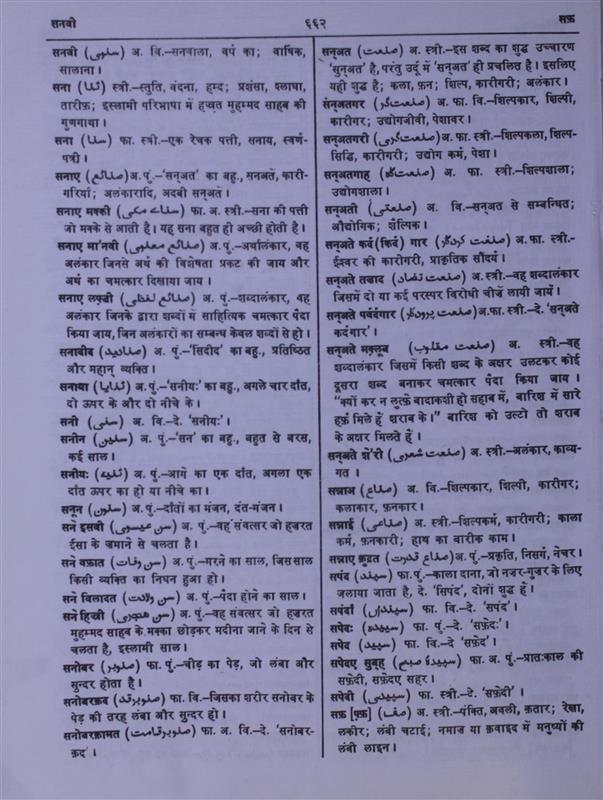 सनवी
६६२
सफ़
सनवी (سنوی) अ. वि.–सनवाला, वर्ष का; वार्षिक,
सालाना।
सना (ثنا) स्त्री.–स्तुति, वंदना, हम्द; प्रशंसा, श्लाघा,
तारीफ़; इस्लामी परिभाषा में हज़्रत मुहम्मद साहब की
गुणगाया।
सना (سنا) फा. स्त्री.–एक रेचक पत्ती, सनाय, स्वर्ण-
पत्री।
सनाए (صنائع) अ. पुं.–'सन्अत' का बहु., सनअतें, कारी-
गरियाँ; अलंकारादि, अदबी सन्अतें।
सनाए मक्की (سنائے مکی) फा. अ. स्त्री.–सना की पत्ती
जो मक्के से आती है। यह सना बहुत ही अच्छी होती है।
सनाए मा'नवी (صنائع معنوی) अ. पुं.–अर्थालंकार, वह
अलंकार जिनसे अर्थ की विशेषता प्रकट की जाय और
अर्थ का चमत्कार दिखाया जाय।
सनाए लफ़्ज़ी (صنائع لفظی) अ. पुं.–शब्दालंकार, वह
अलंकार जिनके द्वारा शब्दों में साहित्यिक चमत्कार पैदा
किया जाय, जिन अलंकारों का सम्बन्ध केवल शब्दों से हो।
सनादीद (صنادید) अ. पुं.–'सिंदीद' का बहु., प्रतिष्ठित
और महान् व्यक्ति।
सनाया (ثنایا) अ. पुं.–'सनीयः' का बहु., अगले चार दाँत,
दो ऊपर के और दो नीचे के।
सनी (سنی) अ. वि.–दे. 'सनीयः'।
सनीन (سنین) अ. पुं.–'सन' का बहु., बहुत से बरस,
कई साल।
सनीयः (ثنیه) अ. पुं.–आगे का एक दाँत, अगला एक
दाँत ऊपर का हो या नीचे का।
सनून (سنون) अ. पुं.–दाँतों का मंजन, दंत-मंजन।
सने इसवी (سن عیسوی) अ. पुं.–वह संवत्सर जो हज़रत
ईसा के ज़माने से चलता है।
सने वफ़ात (سن وفات) अ. पुं.–मरने का साल, जिस साल
किसी व्यक्ति का निधन हुआ हो।
सने विलादत (سن ولادت) अ. पुं.–पैदा होने का साल।
सने हिज्री (سن هجری) अ. पुं.–वह संवत्सर जो हज़रत
मुहम्मद साहब के मक्का छोड़कर मदीना जाने के दिन से
चलता है, इस्लामी साल।
सनोबर (صنوبر) फा. पुं.–चीड़ का पेड़, जो लंबा और
सुन्दर होता है।
सनोबरक़द (صنوبرقد) फा. वि.–जिसका शरीर सनोबर के
पेड़ की तरह लंबा और सुन्दर हो।
सनोबरक़ामत (صنوبر قامت) फा. अ. वि.–दे. 'सनोबर-
क़द'।
सन्अत (صنعت) अ. स्त्री.–इस शब्द का शुद्ध उच्चारण
'सुन्अत' है, परंतु उर्दू में 'सन्अत' ही प्रचलित है। इसलिए
यही शुद्ध है; कला, फ़न; शिल्प, कारीगरी; अलंकार।
संन्अतगर (صنعت گر) अ. फा. वि.–शिल्पकार, शिल्पी,
कारीगर; उद्योगजीवी, पेशावर।
सन्अतगरी (صنعت گری) अ. फा. स्त्री.–शिल्पकला, शिल्प-
सिद्धि, कारीगरी; उद्योग कर्म, पेशा।
सन्अतगाह (صنعت گاه) अ. फा. स्त्री.–शिल्पशाला;
उद्योगशाला।
सन्अती (صنعتی) अ. वि.–सन्अत से सम्बन्धित;
औद्योगिक; शैल्पिक।
सन्अते कर्द (किर्द) गार (صنعت کردگار) अ. फा. स्त्री.–
ईश्वर की कारीगरी, प्राकृतिक सौंदर्य।
सन्अते तज़ाद (صنعت تضاد) अ. स्त्री.–वह शब्दालंकार
जिसमें दो या कई परस्पर विरोधी चीज़ें लायी जायें।
सन्अते पर्वर्दगार (صنعت پروردگار) अ.फा. स्त्री.–दे. 'सन्अते
कर्दगार'।
सन्अते मक़्लूब (صنعت مقلوب) अ. स्त्री.–वह
शब्दालंकार जिसमें किसी शब्द के अक्षर उलटकर कोई
दूसरा शब्द बनाकर चमत्कार पैदा किया जाय।
"क्यों कर न लुत्फ़े बादाकशी हो सहाब में, बारिश में सारे
हर्फ़ मिले हैं शराब के।" बारिश को उल्टो तो शराब
के अक्षर मिलते हैं।
सन्अते शे'री (صنعت شعری) अ. स्त्री.–अलंकार, काव्य-
गत।
सन्नाअ (صناع) अ. वि.–शिल्पकार, शिल्पी, कारीगर;
कलाकार, फ़नकार।
सन्नाई (صناعی) अ. स्त्री.–शिल्पकर्म, कारीगरी; काला
कर्म, फ़नकारी; हाथ का बारीक काम।
सन्नाए क़ुद्रत (صناع قدرت) अ. पुं.–प्रकृति, निसर्ग, नेचर।
सपंद (سپند) फा. पुं.–काला दाना, जो नज़र-गुज़र के लिए
जलाया जाता है, दे. 'सिपंद', दोनों शुद्ध हैं।
सपंदाँ (سپنداں) फा. वि.–दे. 'सपंद'।
सपेदः (سپیده) फा. पुं.–दे. 'सफ़ेदः'।
सपेद (سپید) फा. वि.–दे 'सफ़ेद'।
सपेदए सुबूह (سپیدۂ صبح) फा. अ. पुं.–प्रातःकाल की
सफ़ेदी, सफ़ेदए सहर।
सपेदी (سپیدی) फा. स्त्री.–दे. 'सफ़ेदी'।
सफ़ [फ़्फ़] (صف) अ. स्त्री.–पंक्ति, अवली, क़तार; रेखा,
लकीर; लंबी चटाई; नमाज़ या क़वाइद में मनुष्यों की
लंबी लाइन।